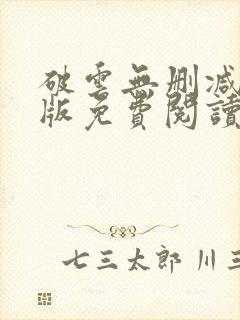 破雲無刪減
版免費閱讀
七三太郎 川三